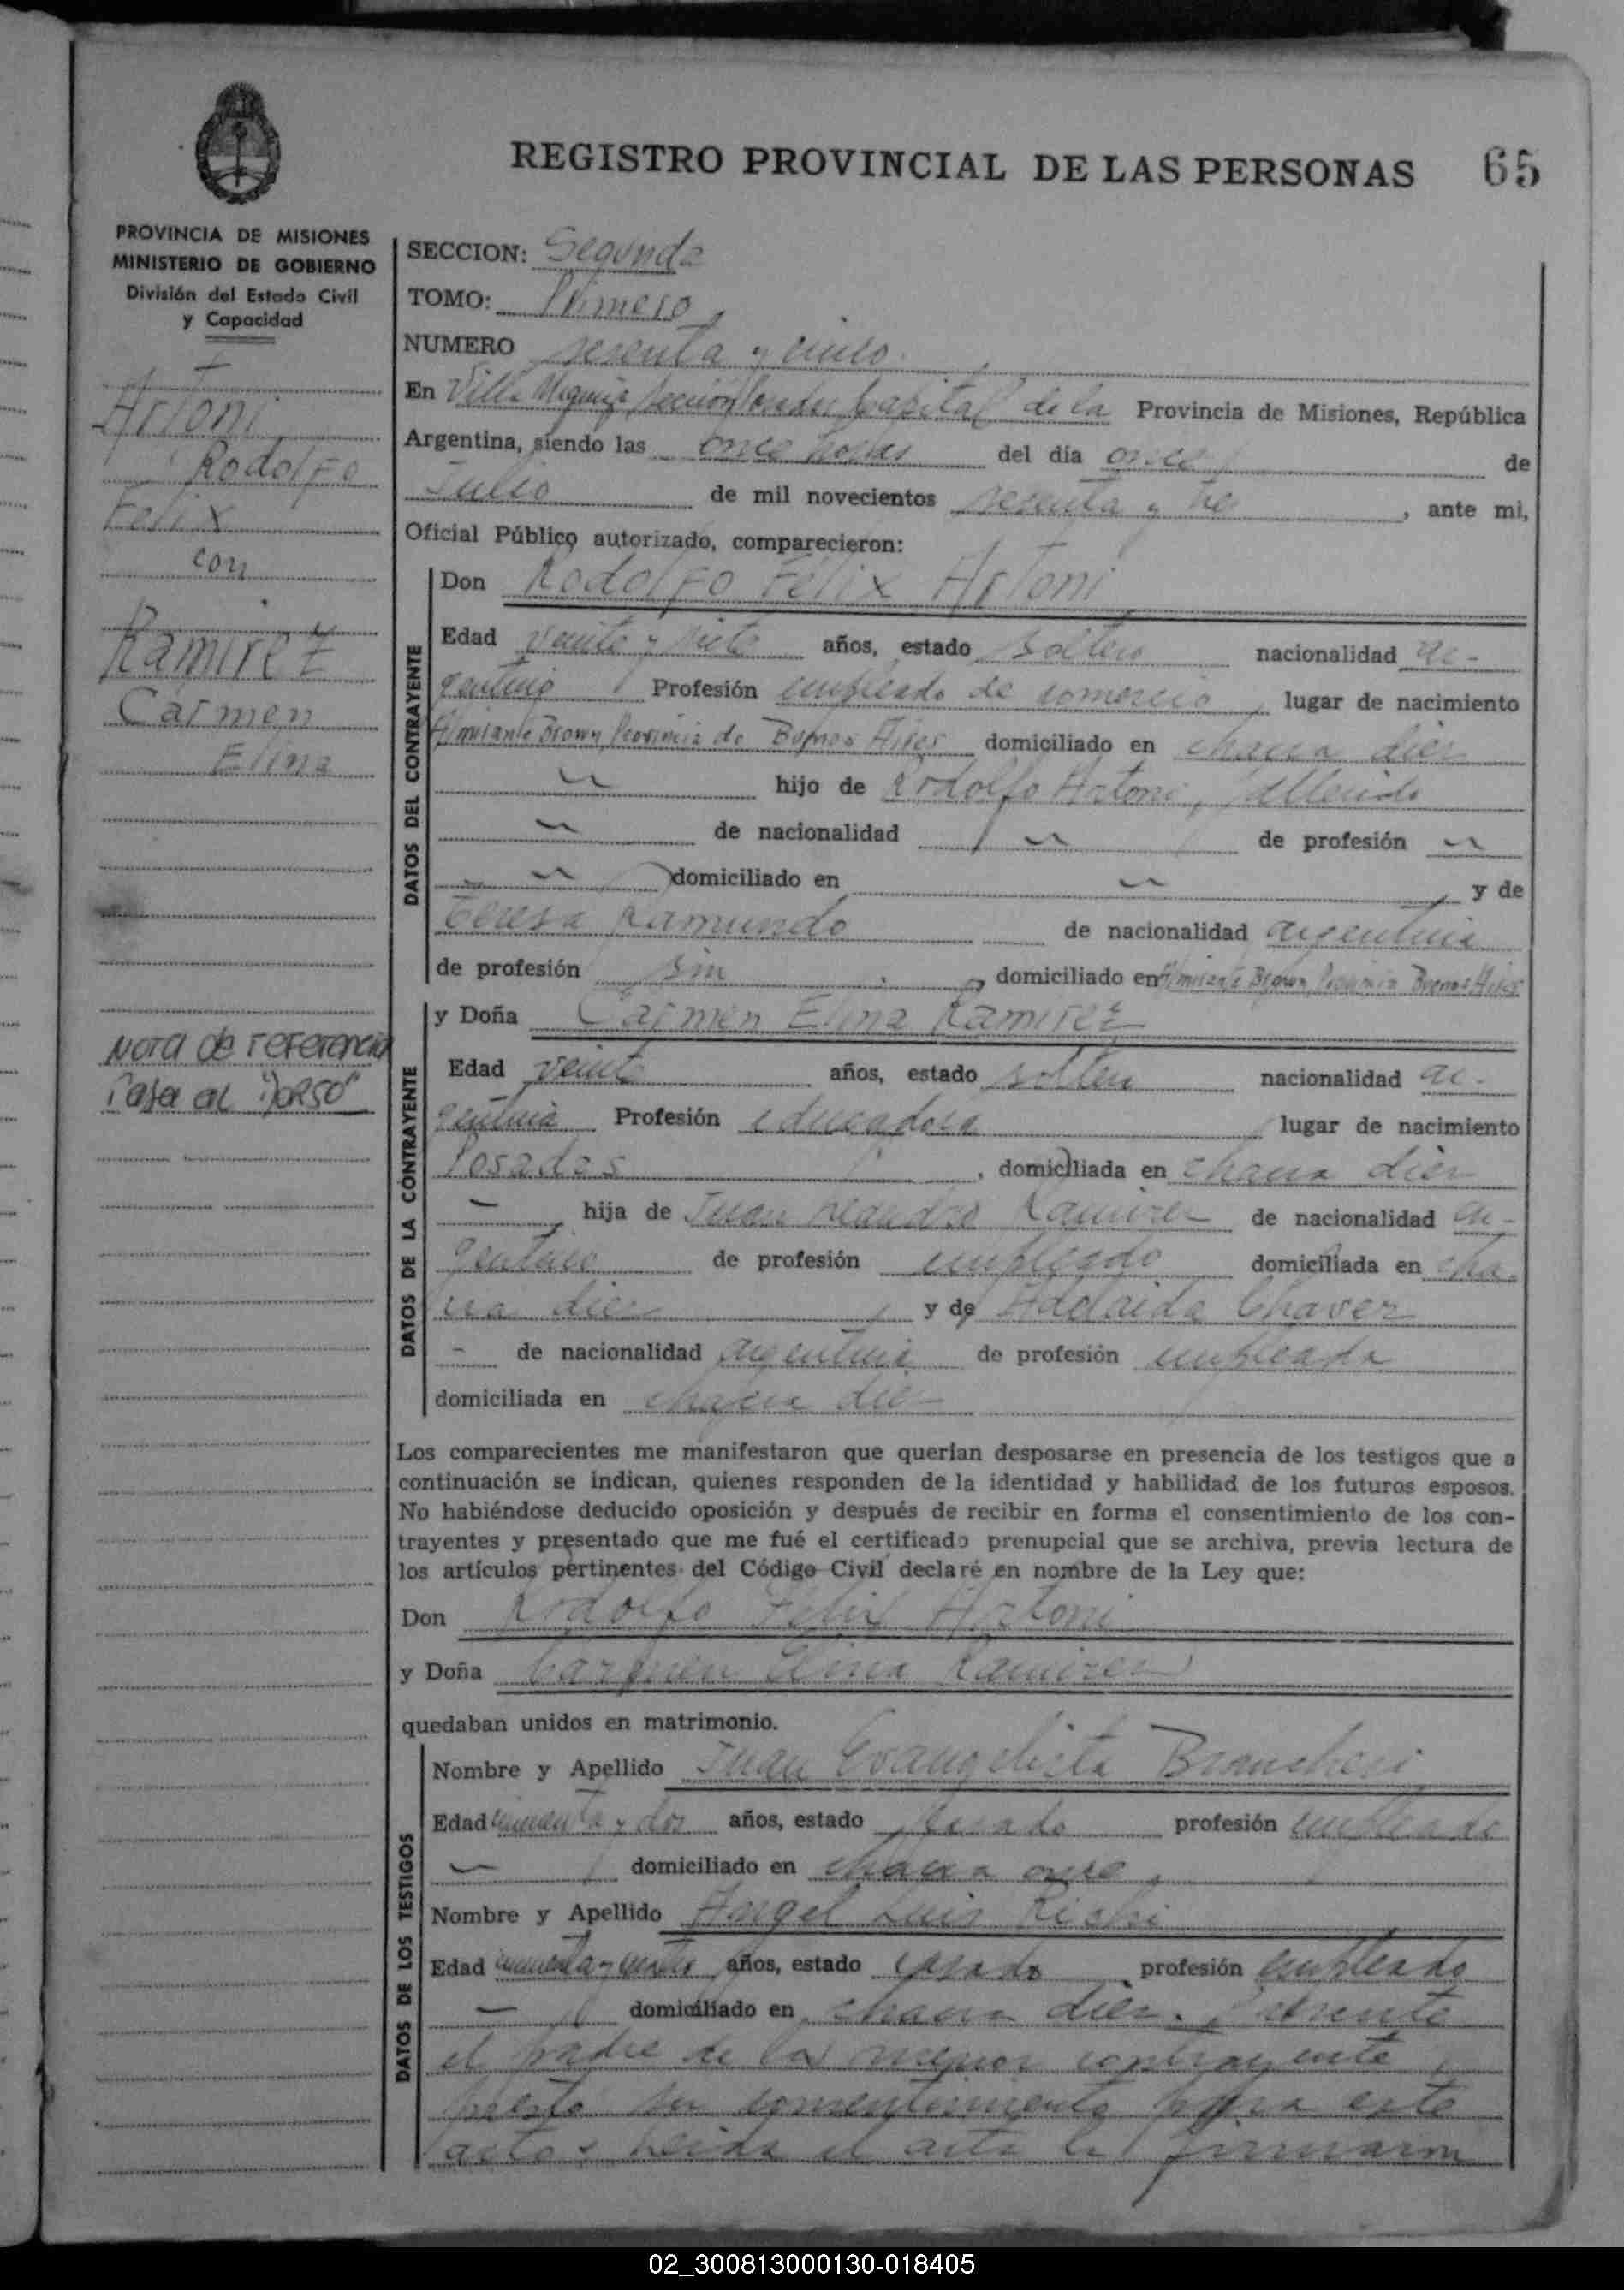 REGISTRO PROVINCIAL DE LAS PERSONAS 65
PROVINCIA DE MISIONES
MINISTERIO DE GOBIERNO
División del Estado Civil
y Capacidad
Artoni
Rodolfo
Felix
con
Ramirez
Carmen
Elina
Nota de referencia
Pasa al "Dorso"
SECCION: Segunda
TOMO: Primero
NUMERO sesenta y cinco
En Villa Capital de la Provincia de Misiones, República
Argentina, siendo las once horas del día once de
Julio de mil novecientos sesenta y , ante mi,
Oficial Público autorizado, comparecieron:
DATOS DEL CONTRAYENTE
Don Rodolfo Felix Artoni
Edad veinte y siete años, estado soltero nacionalidad ar-
gentino Profesión empleado de comercio, lugar de nacimiento
Almirante Brown, Provincia de Buenos Aires domiciliado en chacra diez
hijo de Rodolfo Artoni, fallecido
de nacionalidad de profesión
domiciliado en y de
Teresa Ramundo de nacionalidad argentina
de profesión sin, domiciliado en Almirante Brown Provincia Buenos Aires
DATOS DE LA CONTRAYENTE
y Doña Carmen Elina Ramirez
Edad veinte años, estado soltera nacionalidad ar-
gentina Profesión educadora, lugar de nacimiento
Posadas, domiciliada en chacra diez
hija de Juan Leandro Ramirez de nacionalidad ar-
gentino de profesión empleado domiciliada en cha-
cra diez y de Adelaida Chavez
- de nacionalidad argentina de profesión empleada
domiciliada en chacra diez
Los comparecientes me manifestaron que querían desposarse en presencia de los testigos que a
continuación se indican, quienes responden de la identidad y habilidad de los futuros esposos.
No habiéndose deducido oposición y después de recibir en forma el consentimiento de los con-
trayentes y presentado que me fué el certificado prenupcial que se archiva, previa lectura de
los artículos pertinentes del Código Civil declaré en nombre de la Ley que:
Don Rodolfo Felix Artoni
y Doña Carmen Elina Ramirez
quedaban unidos en matrimonio.
DATOS DE LOS TESTIGOS
Nombre y Apellido Juan Evangelista
Edad cincuenta y dos años, estado casado profesión empleado
domiciliado en chacra once
Nombre y Apellido Angel Luis
Edad años, estado casado profesión empleado
domiciliado en chacra diez. Presente
el padre de la menor contrayente
presta su consentimiento para este
acto. Leida el acta la firmaron
02_300813000130-018405